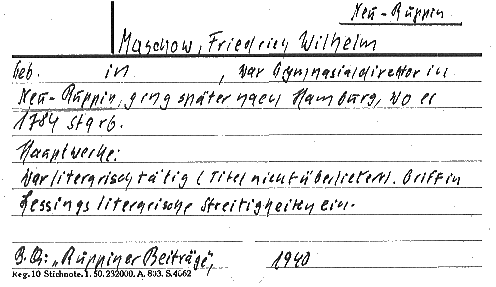 Neu-Ruppin
Maschow, Friedrich Wilhelm
Geb. in , war Gymnasialdirektor in
Neu-Ruppin, ging später nach Hamburg, wo er
1784 starb.
Hauptwerke:
War literarisch tätig (Titel nicht überliefert). Griff in
Lessings literarische Streitigkeiten ein.
B.Qu: "Ruppiner Beiträge", 1940
Reg. 10 Stichnote. 1. 50. 232000. A. 803. S.4062